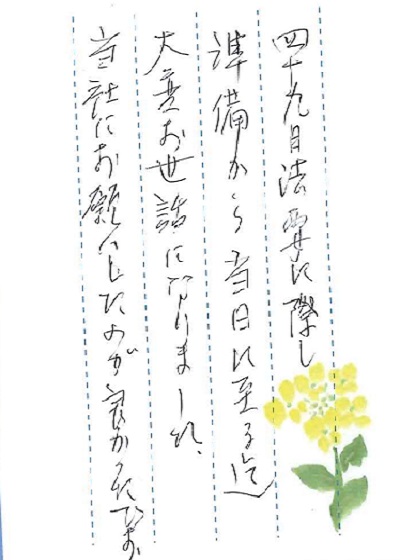 四十九日法要に際し
準備から当日に至る迄
大変お世話になりました、
当社にお願いしたのが良かったです